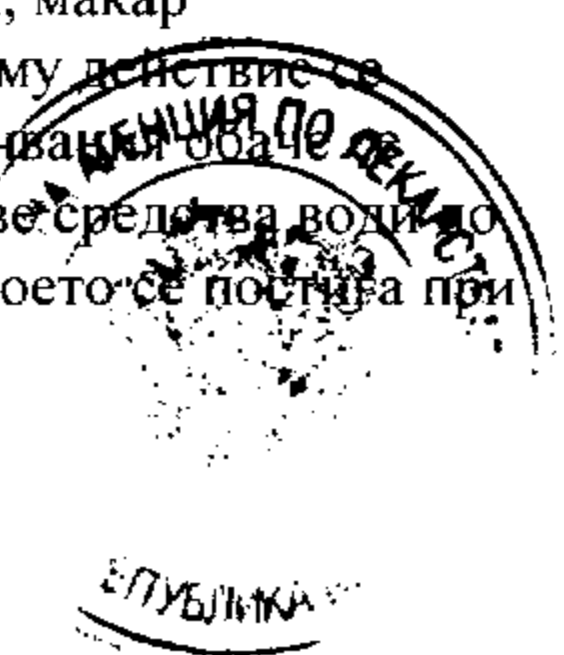 , макар
му действие се
обаче се
ве средства води до
оето се постига при
АГЕНЦИЯ ПО ЛЕКАРСТ
ЕПУБЛИКА